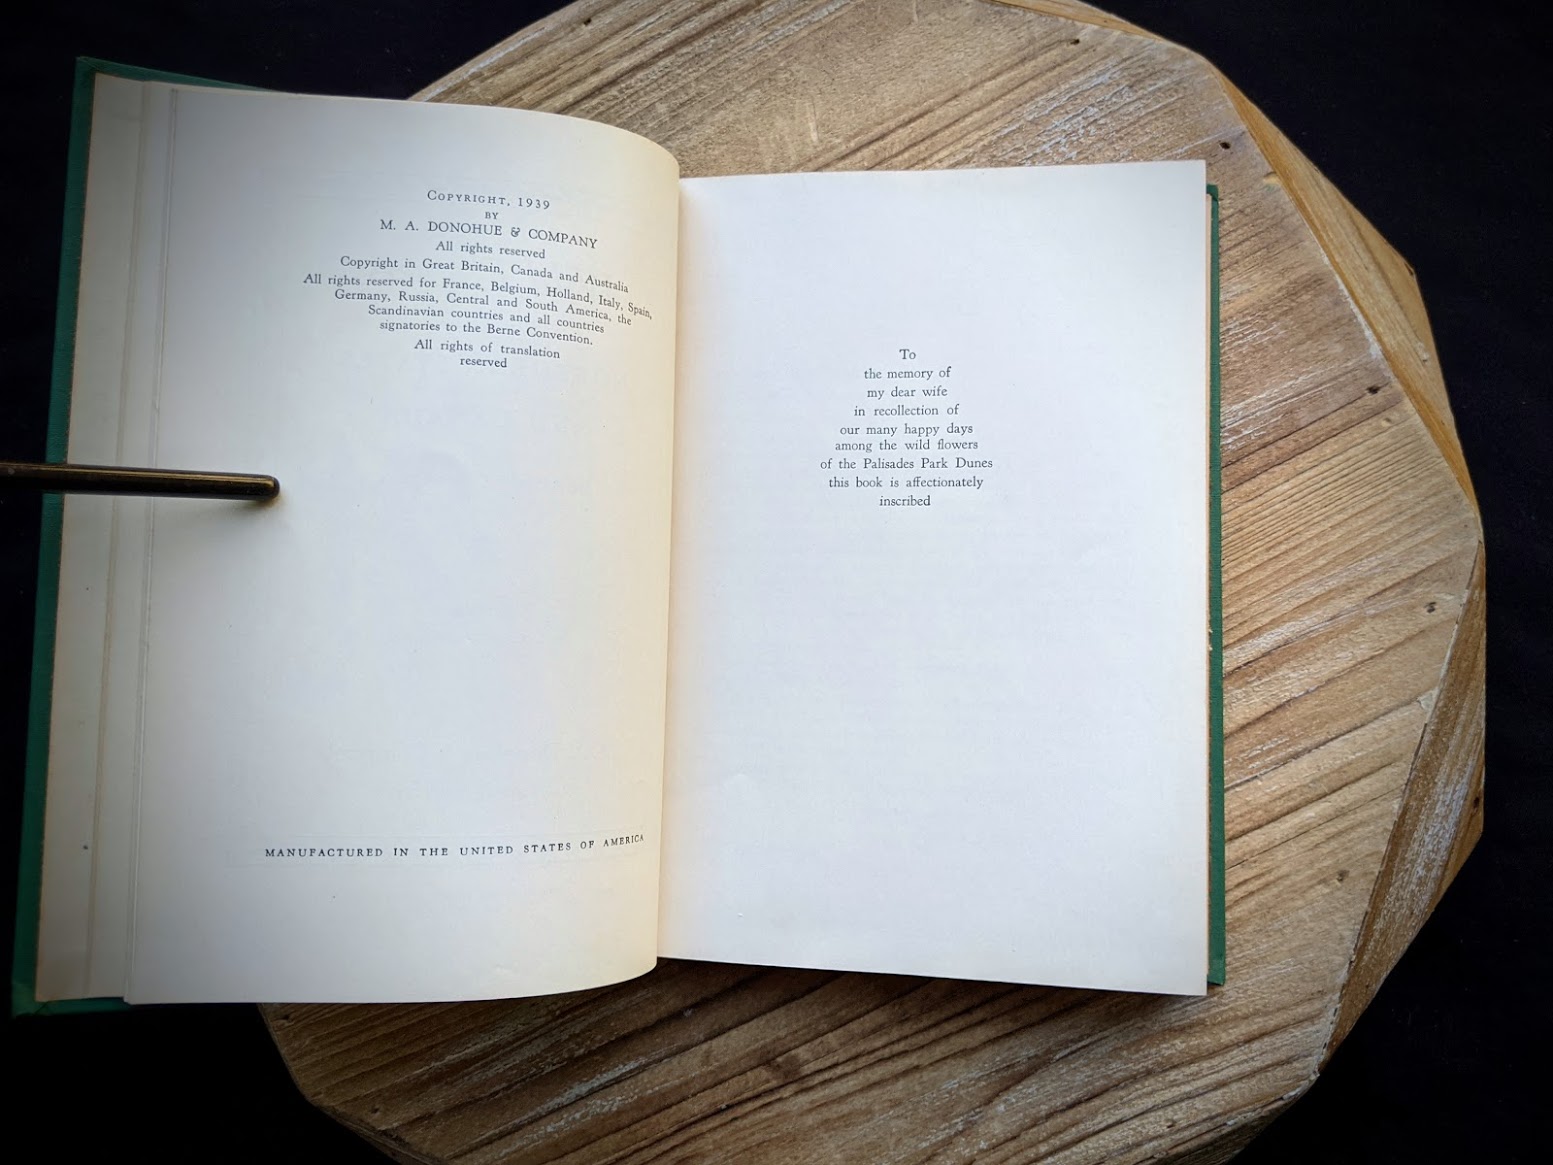 COPYRIGHT, 1939
BY
M. A. DONOHUE & COMPANY
All rights reserved
Copyright in Great Britain, Canada and Australia
All rights reserved for France, Belgium, Holland, Italy, Spain,
Germany, Russia, Central and South America, the
Scandinavian countries and all countries
signatories to the Berne Convention.
All rights of translation
reserved
MANUFACTURED IN THE UNITED STATES OF AMERICA
To
the memory of
my dear wife
in recollection of
our many happy days
among the wild flowers
of the Palisades Park Dunes
this book is affectionately
inscribed